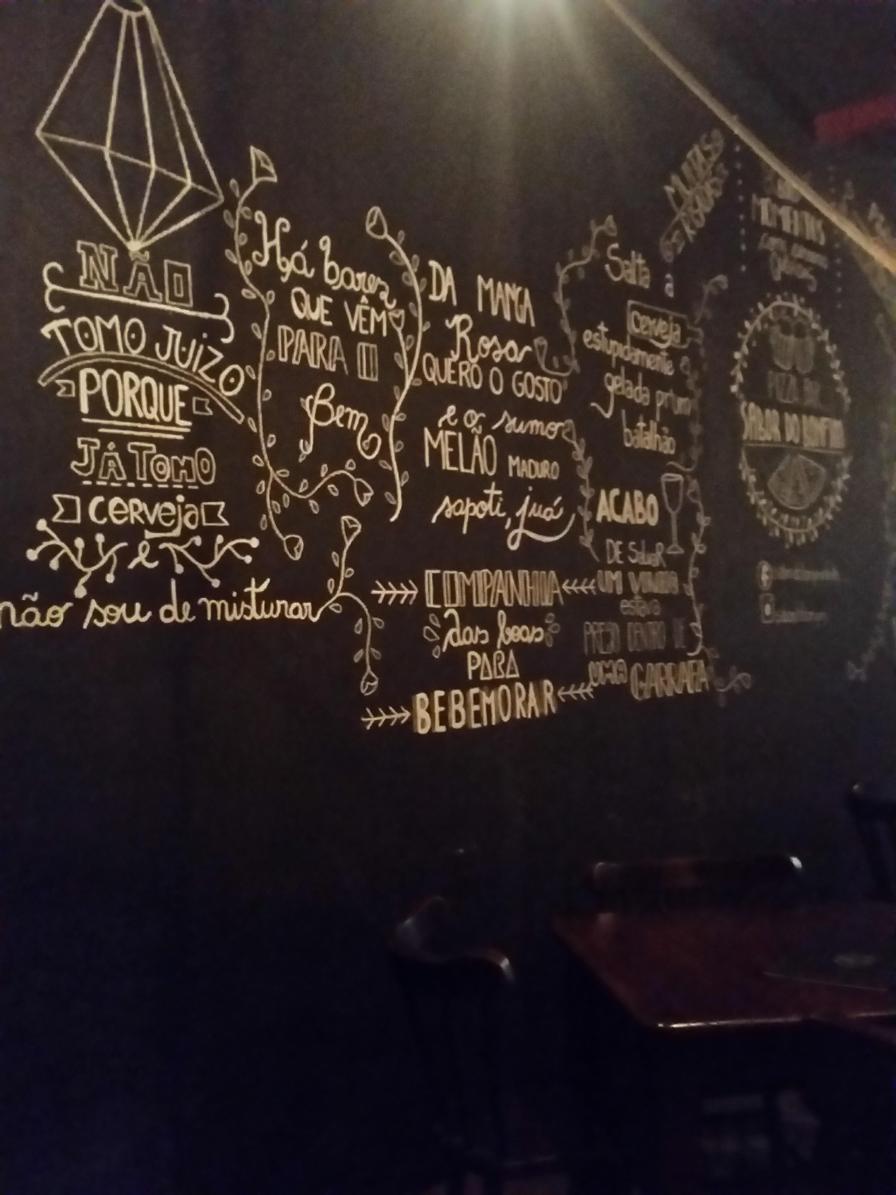 NÃO
TOMO JUIZO
PORQUE
JÁ TOMO
cerveja
e
não sou de misturar
Há bares
QUE VÊM
PARA O
Bem
DA MANGA
Rosa
QUERO O GOSTO
e o sumo
MELÃO MADURO
sapoti, juá
COMPANHIA
das boas
PARA
BEBEMORAR
Salta a
cerveja
estupidamente
gelada prum
batalhão
ACABO
DE SABER
UM VINHO
estava
PRESO DENTRO DE
UMA GARRAFA
MOMENTOS
SABOR DO